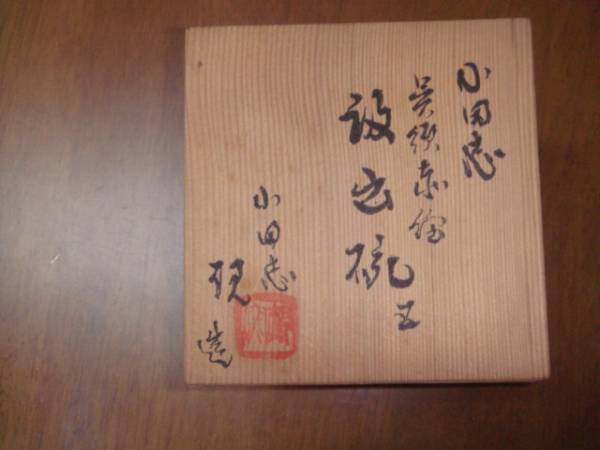 小田志
呉須赤絵
汲出碗 五
小田志
造